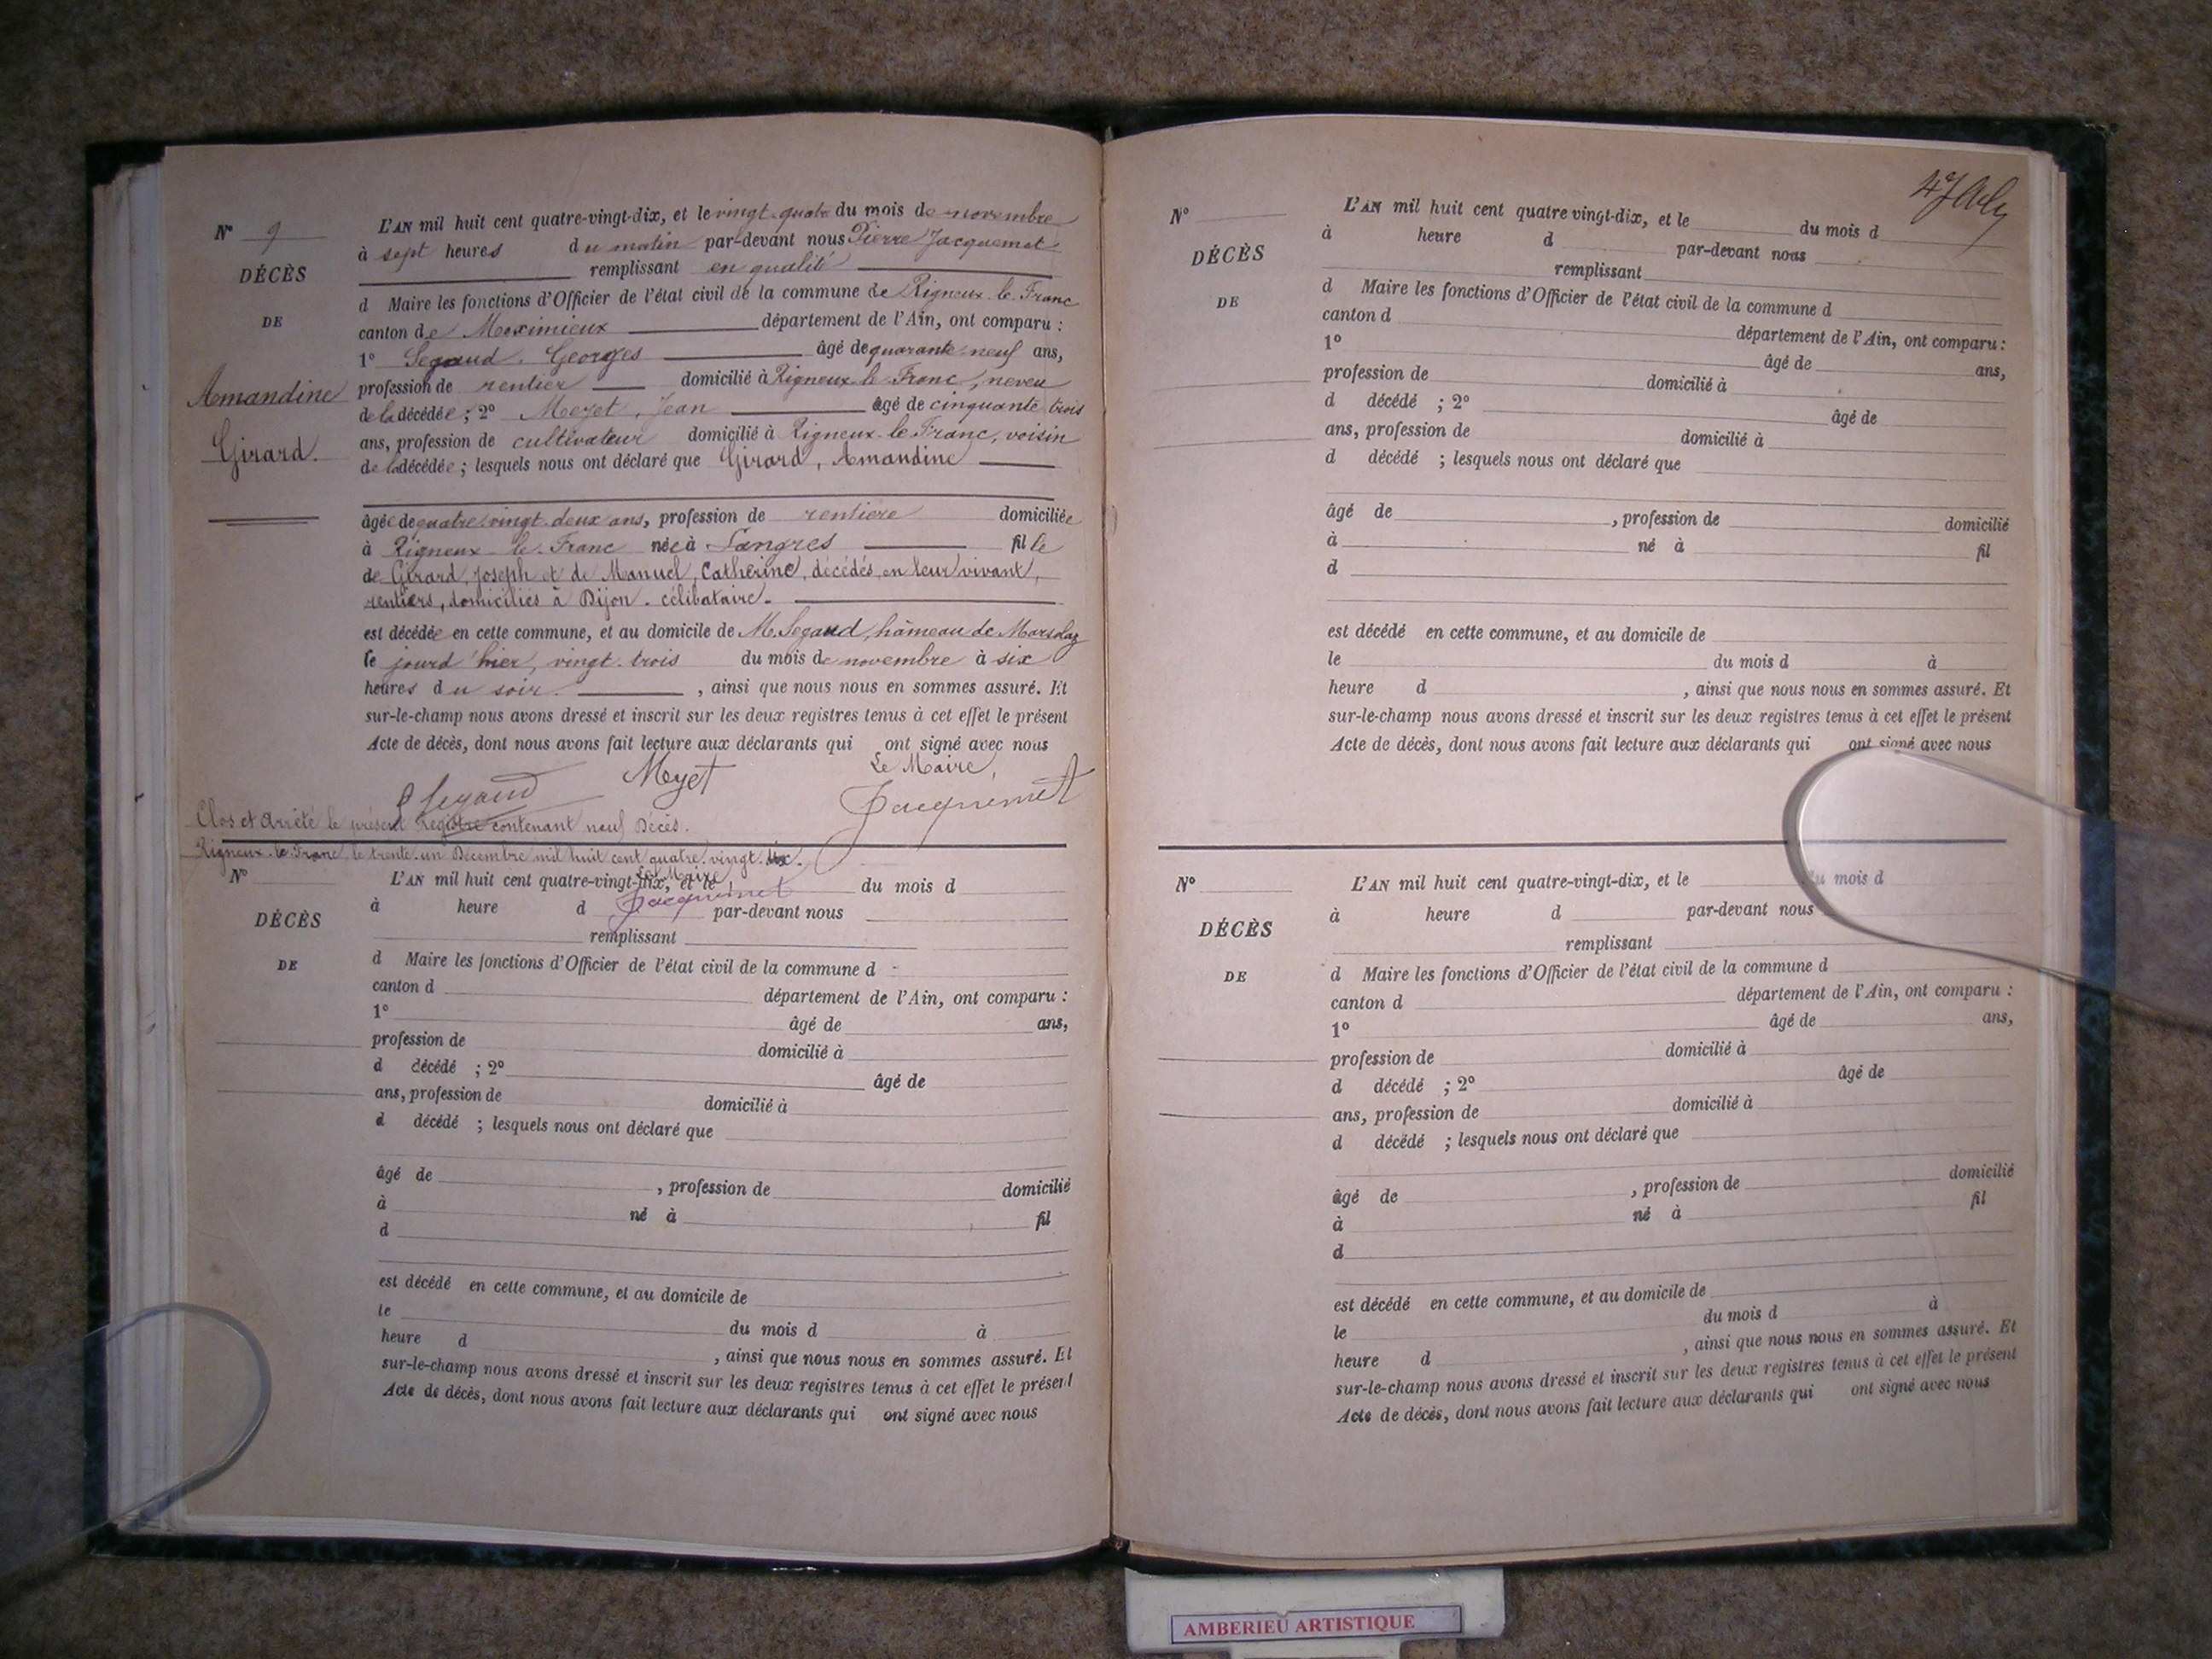 N° 9
DÉCÈS
DE
Amandine
Girard.
L'AN mil huit cent quatre-vingt-dix, et le vingt-quatre du mois de novembre
à sept heures du matin par-devant nous Pierre Jacquemet
remplissant en qualité
d Maire les fonctions d'Officier de l'état civil de la commune de Rigneux-le-Franc
canton de Meximieux département de l'Ain, ont comparu :
1° Segaud, Georges âgé de quarante-neuf ans,
profession de rentier domicilié à Rigneux-le-Franc, neveu
de la décédée ; 2° Meyet, Jean âgé de cinquante trois
ans, profession de cultivateur domicilié à Rigneux-le-Franc, voisin
de la décédée ; lesquels nous ont déclaré que Girard, Amandine
âgée de quatre-vingt-deux ans, profession de rentière domiciliée
à Rigneux-le-Franc née à Langres fille
de Girard, Joseph et de Manuel, Catherine, décédés, en leur vivant,
rentiers, domiciliés à Dijon. célibataire.
est décédée en cette commune, et au domicile de M. Segaud, hâmeau de Marsolaz
le jourd'hier, vingt-trois du mois de novembre à six
heures du soir. , ainsi que nous nous en sommes assuré. Et
sur-le-champ nous avons dressé et inscrit sur les deux registres tenus à cet effet le présent
Acte de décès, dont nous avons fait lecture aux déclarants qui ont signé avec nous
Le Maire,
Segaud Meyet Jacquemet
Clos et Arrêté le présent Registre contenant neuf Décès.
Rigneux-le-Franc, le trente-un Décembre mil huit cent quatre-vingt-dix.
Le Maire,
Jacquemet
N°
DÉCÈS
DE
L'AN mil huit cent quatre-vingt-dix, et le du mois d
à heure d par-devant nous
remplissant
d Maire les fonctions d'Officier de l'état civil de la commune d
canton d département de l'Ain, ont comparu :
1° âgé de ans,
profession de domicilié à
d décédé ; 2° âgé de
ans, profession de domicilié à
d décédé ; lesquels nous ont déclaré que
âgé de , profession de domicilié
à né à fil
d
est décédé en cette commune, et au domicile de
le du mois d à
heure d , ainsi que nous nous en sommes assuré. Et
sur-le-champ nous avons dressé et inscrit sur les deux registres tenus à cet effet le présent
Acte de décès, dont nous avons fait lecture aux déclarants qui ont signé avec nous
N°
DÉCÈS
DE
L'AN mil huit cent quatre vingt-dix, et le du mois d
à heure d par-devant nous
remplissant
d Maire les fonctions d'Officier de l'état civil de la commune d
canton d département de l'Ain, ont comparu :
1° âgé de ans,
profession de domicilié à
d décédé ; 2° âgé de
ans, profession de domicilié à
d décédé ; lesquels nous ont déclaré que
âgé de , profession de domicilié
à né à fil
d
est décédé en cette commune, et au domicile de
le du mois d à
heure d , ainsi que nous nous en sommes assuré. Et
sur-le-champ nous avons dressé et inscrit sur les deux registres tenus à cet effet le présent
Acte de décès, dont nous avons fait lecture aux déclarants qui ont signé avec nous
N°
DÉCÈS
DE
L'AN mil huit cent quatre-vingt-dix, et le du mois d
à heure d par-devant nous
remplissant
d Maire les fonctions d'Officier de l'état civil de la commune d
canton d département de l'Ain, ont comparu :
1° âgé de ans,
profession de domicilié à
d décédé ; 2° âgé de
ans, profession de domicilié à
d décédé ; lesquels nous ont déclaré que
âgé de , profession de domicilié
à né à fil
d
est décédé en cette commune, et au domicile de
le du mois d à
heure d , ainsi que nous nous en sommes assuré. Et
sur-le-champ nous avons dressé et inscrit sur les deux registres tenus à cet effet le présent
Acte de décès, dont nous avons fait lecture aux déclarants qui ont signé avec nous
AMBERIEU ARTISTIQUE